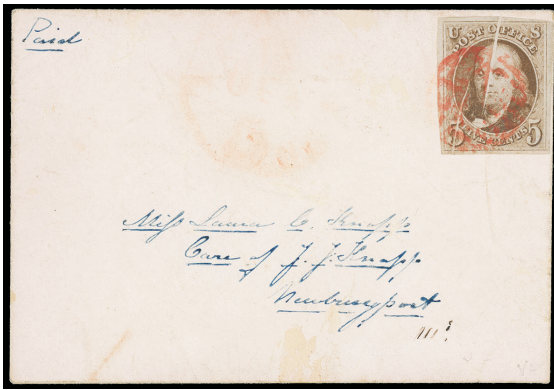 Paid
U S
POST OFFICE
FIVE CENTS
5 5
Miss Laura C. Knapp
Care of J. J. Knapp
Newburyport